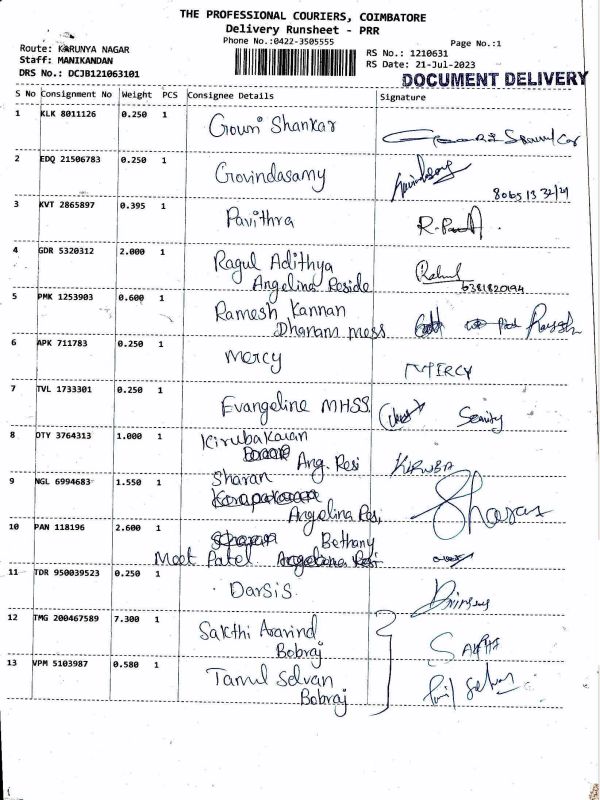 THE PROFESSIONAL COURIERS, COIMBATORE
Delivery Runsheet - PRR
Phone No.:0422-3505555
Page No.:1
Route: KARUNYA NAGAR
RS No.: 1210631
Staff: MANIKANDAN
RS Date: 21-Jul-2023
DRS No.: DCJB121063101
DOCUMENT DELIVERY
S No Consignment No Weight PCS Consignee Details Signature
1 KLK 8011126 0.250 1 Gouri Shankar
2 EDQ 21506783 0.250 1 Govindasamy
3 KVT 2865897 0.395 1 Pavithra
4 GDR 5320312 2.000 1 Ragul Adithya
Angelina Reside 6381820194
5 PMK 1253903 0.600 1 Ramesh Kannan
Dhanam mess
6 APK 711783 0.250 1 Mercy MERCY
7 TVL 1733301 0.250 1 Evangeline MHSS
8 DTY 3764313 1.000 1 Kirubakaran
Ang. Resi KIRUBA
9 NGL 6994683 1.550 1 Sharan
Angelina Resi Sharan
10 PAN 118196 2.600 1 Bethany
Meet Patel
11 TDR 950039523 0.250 1 Darsis
12 TMG 200467589 7.300 1 Sakthi Aravind
Bobraj SAKTHI
13 VPM 5103987 0.580 1 Tamil Selvan
Bobraj